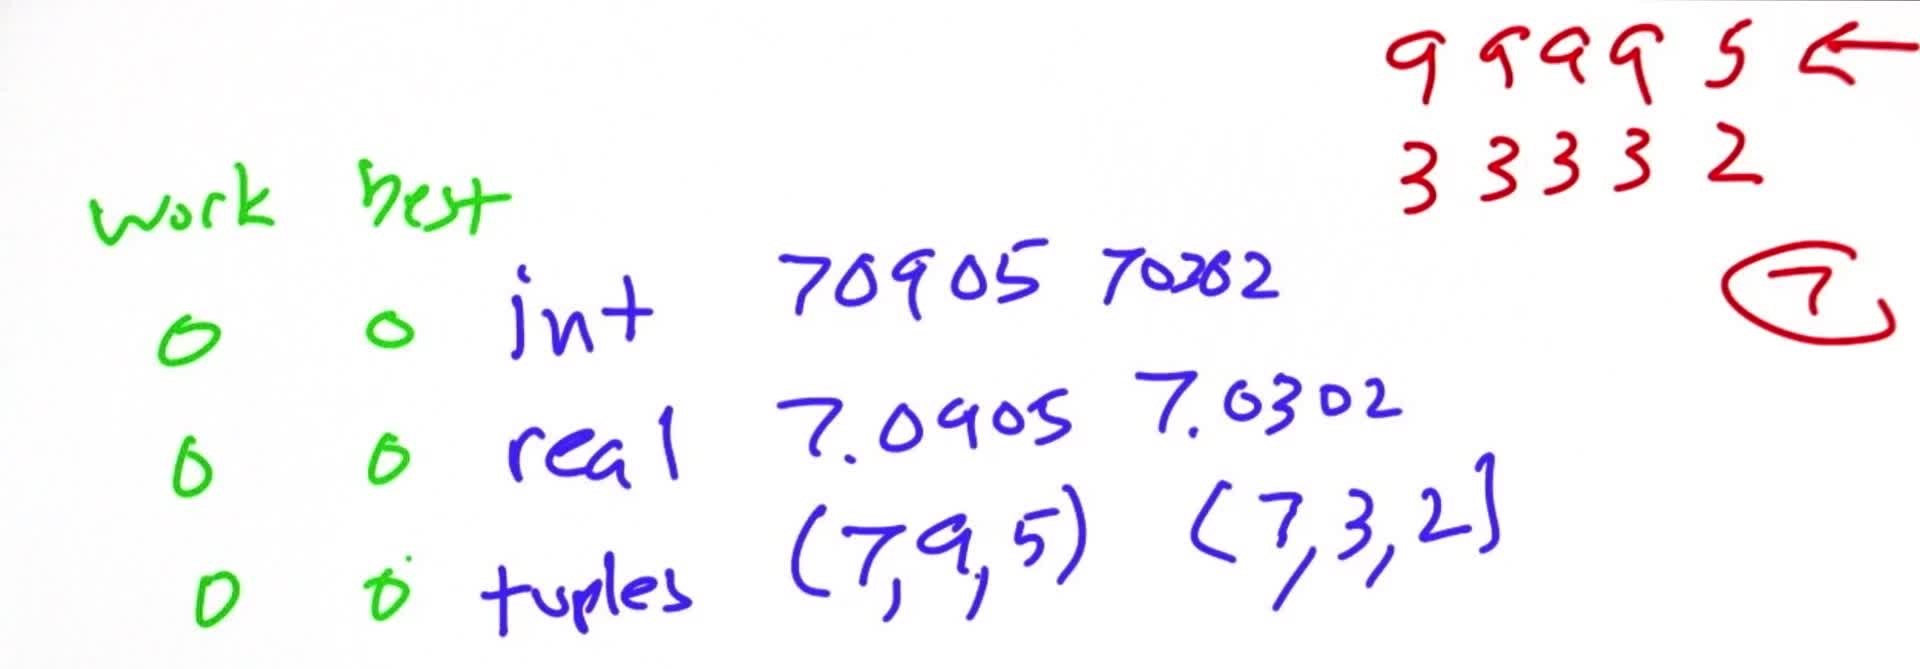 9 9 9 9 5 ←
3 3 3 3 2
7
work best
0 0 int 70905 70302
0 0 real 7.0905 7.0302
0 0 tuples (7,9,5) (7,3,2]